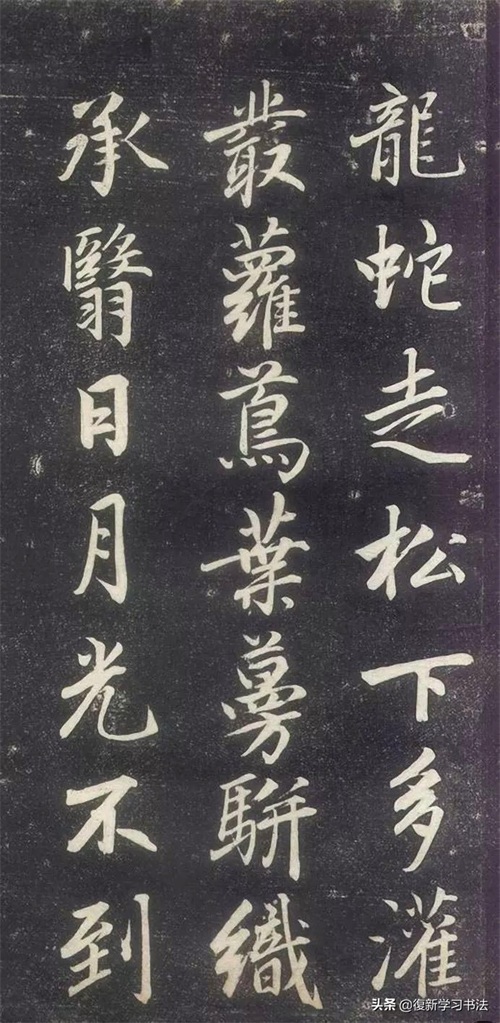 龍蛇走松下多灌
叢蘿蔦葉蔓駢織
承翳日月光不到
头条 @復新学习书法